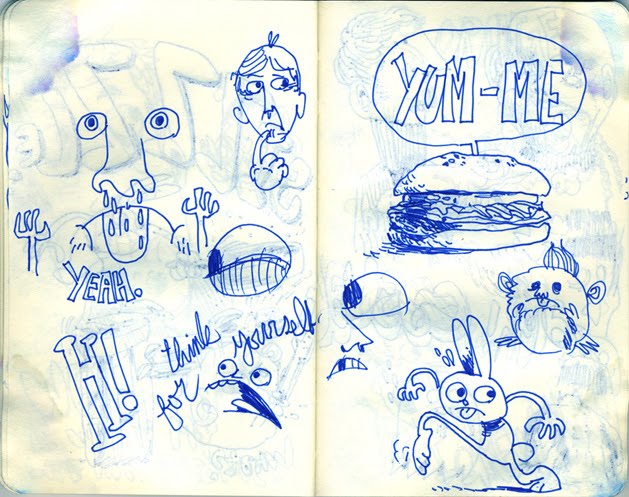 YEAH.
HI!
think
for yourself.
YUM-ME